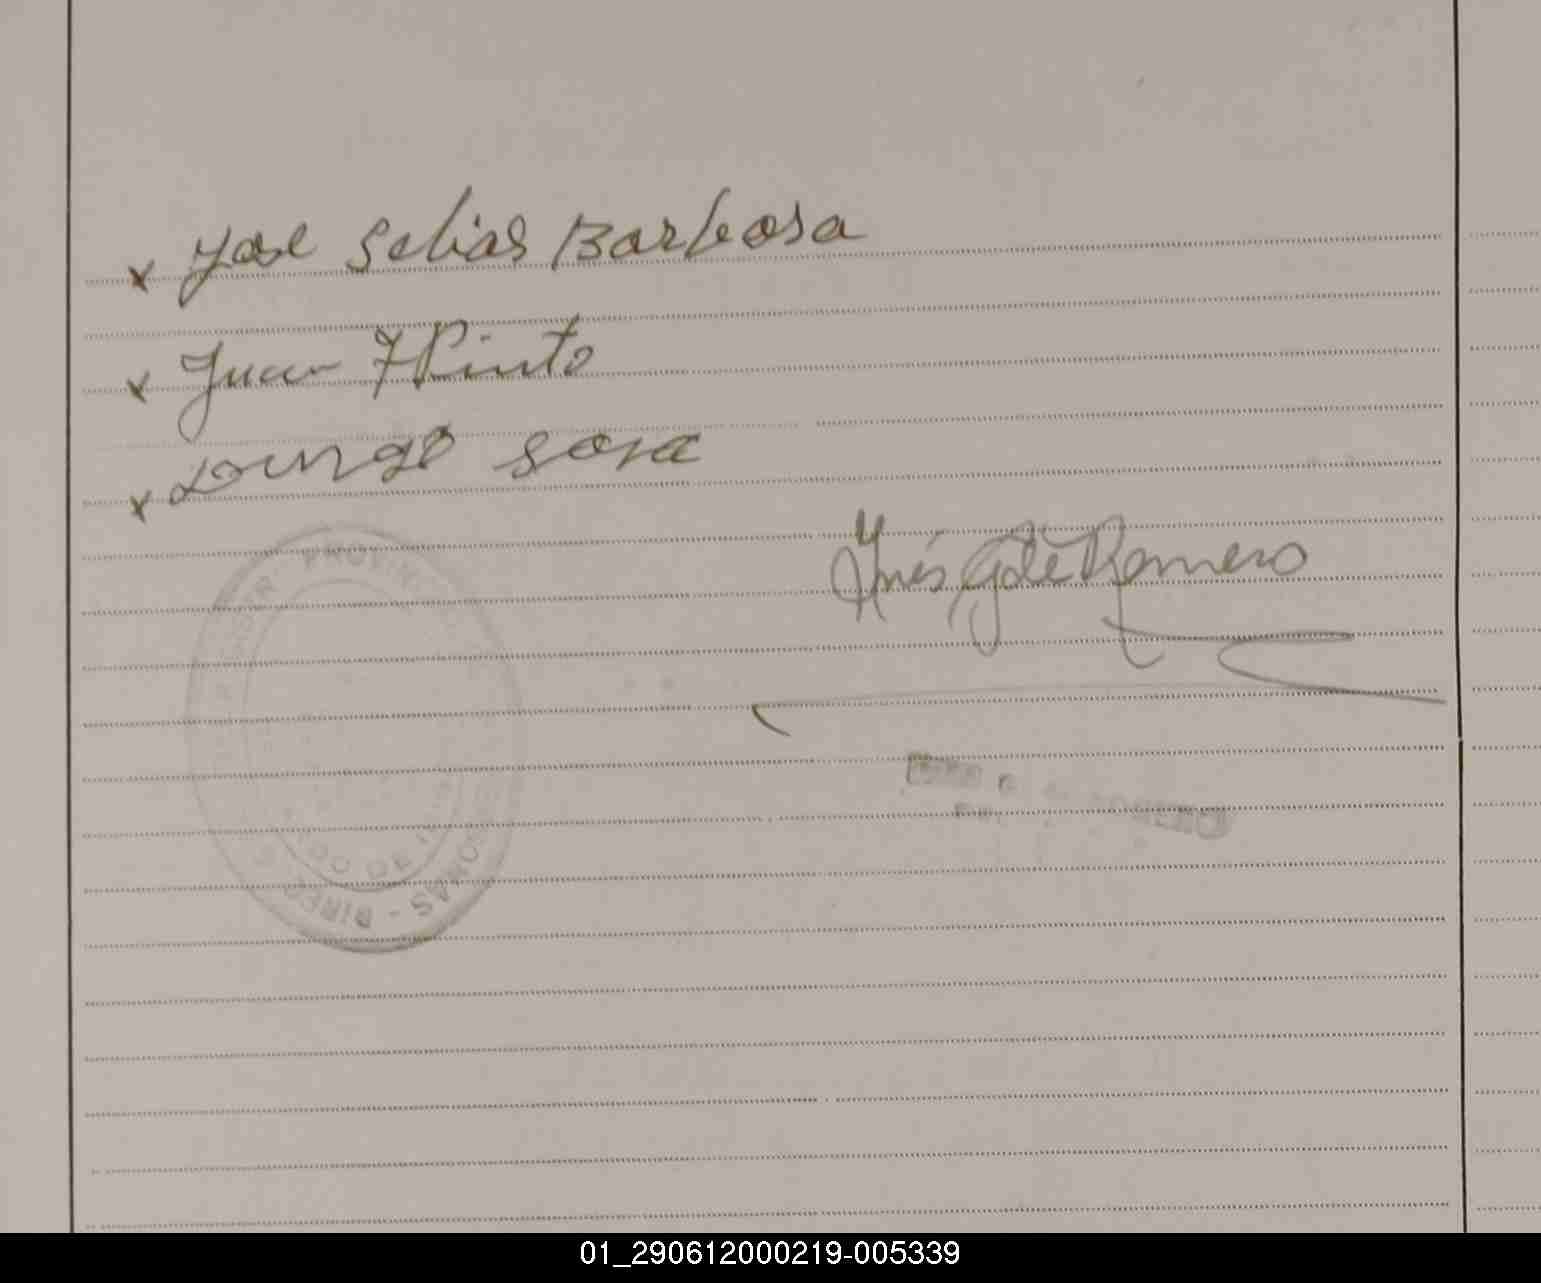 x Jose Selias Barbosa
x Juan F Pinto
x Domgo Sosa
Inés G de Romero
PROVIN
DO DE
DIREC
OMAS -
01_290612000219-005339